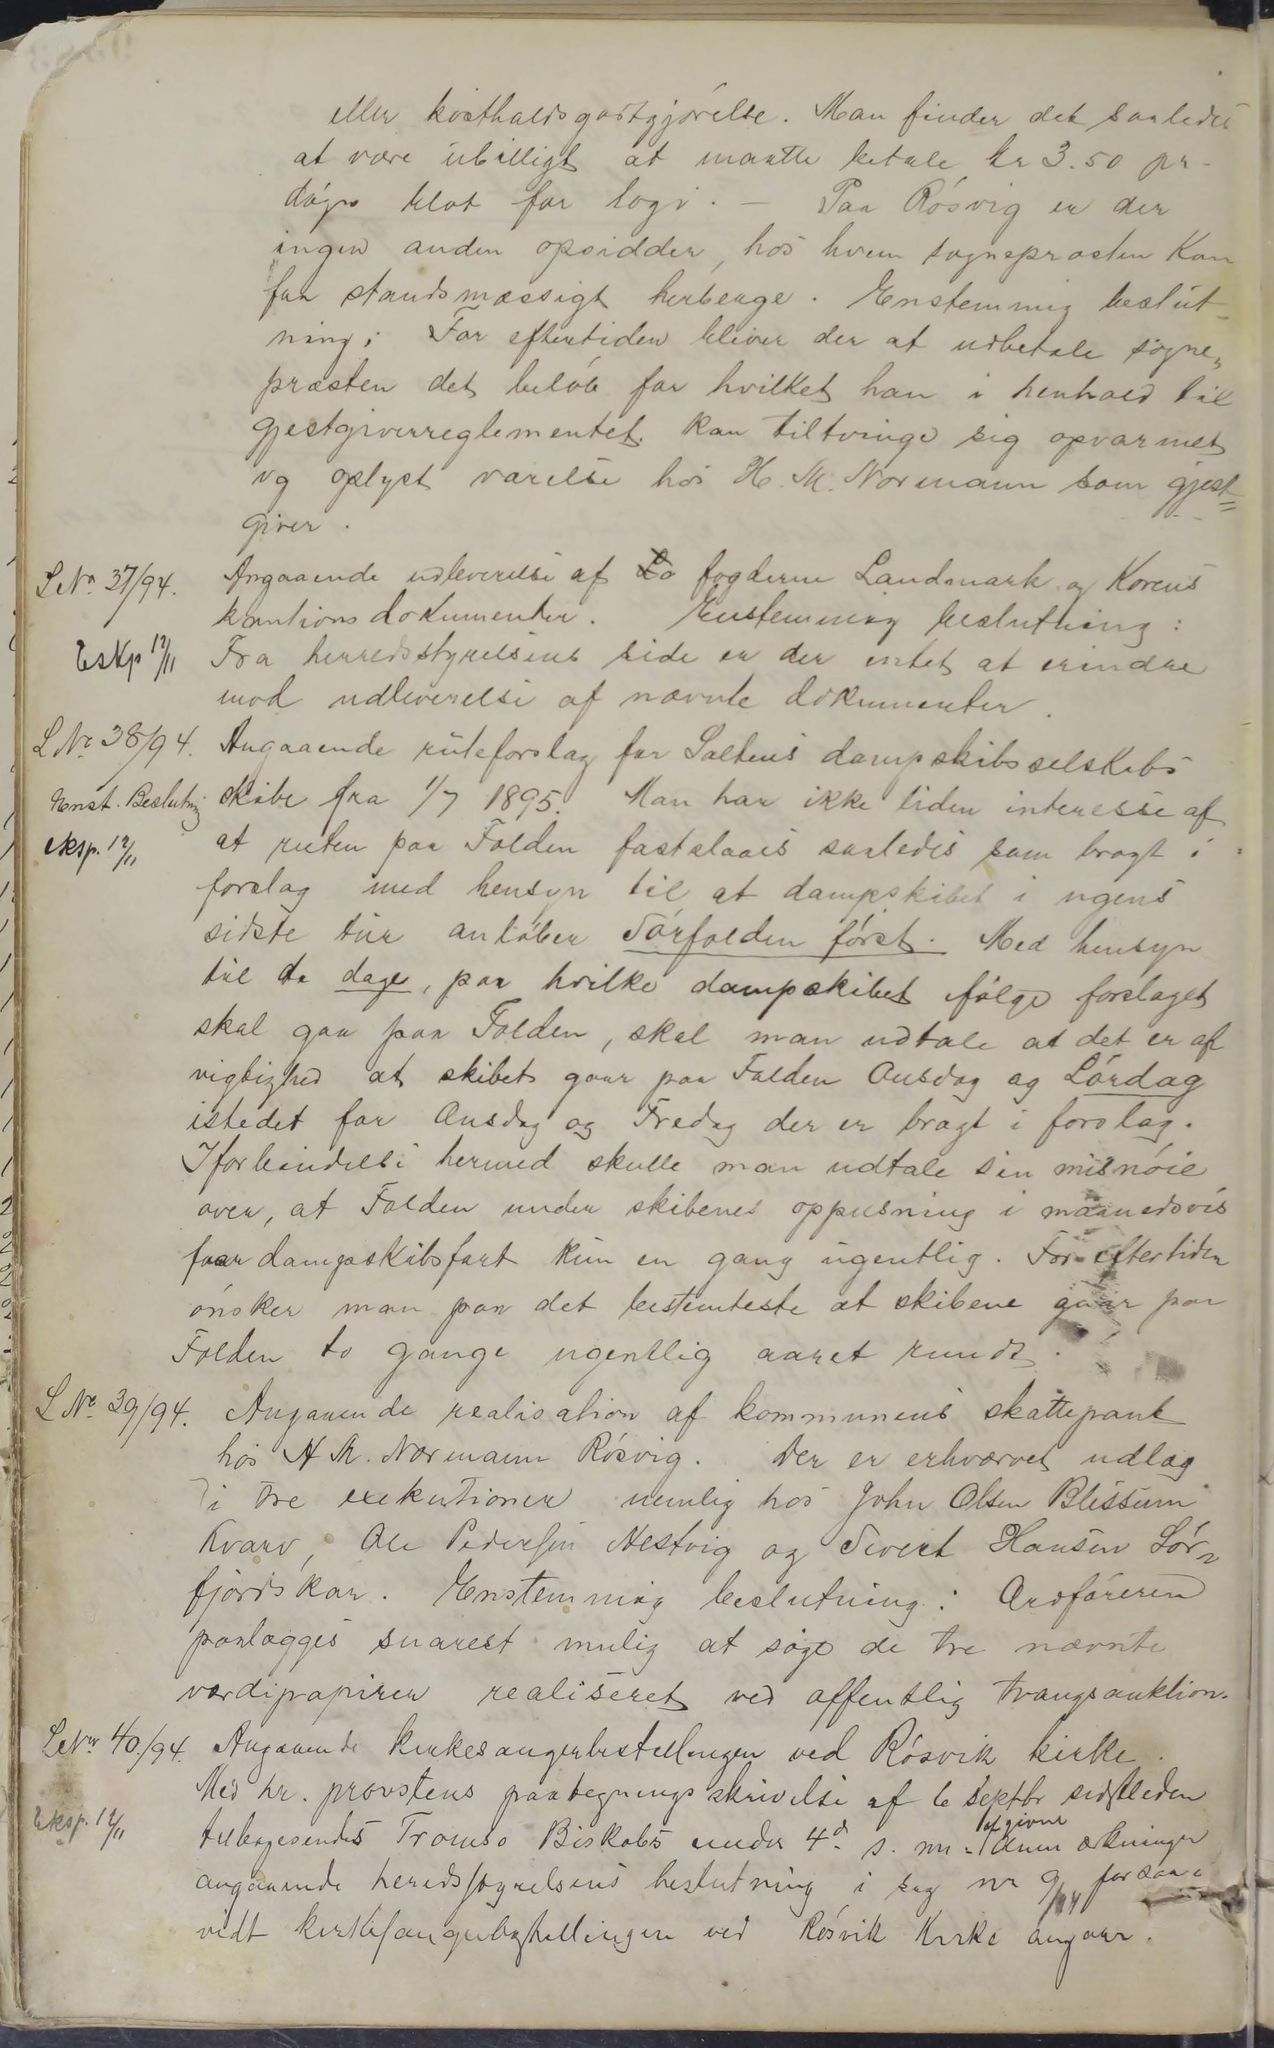 eller kosthaldsgodtgjørelse. Man finder det saaledes
at være ubilligt at maatte betale kr 3.50 pr.
døgn blot for logi. — Paa Røsvig er der
ingen anden opsidder, hos hvem sognepræsten kan
faa standsmæssigt herberge. Enstemmig beslut-
ning: For eftertiden bliver der at udbetale sogne-
præsten det beløb for hvilket han i henhold til
gjestgiverreglementet kan tiltvinge sig opvarmet
og oplyst værelse hos H. M. Normann som gjest=
giver.
L No 37/94. Angaaende udleverelse af fogderne Landmark og Korens
kautionsdokumenter. Enstemmig beslutning:
Eskp 12/11 Fra herredsstyrelsens side er der intet at erindre
mod udleverelse af nævnte dokumenter.
L No 38/94. Angaaende ruteforslag for Saltens dampskibsselskabs
Enst. Beslutnig skibe fra 1/7 1895. Man har ikke liden interesse af
eksp. 12/11 at ruten paa Folden fastslaaes saaledes som bragt i
forslag med hensyn til at dampskibet i ugens
sidste tur anløber Sørfolden først. Med hensyn
til de dage, paa hvilke dampskibet ifølge forslaget
skal gaa paa Folden, skal man udtale at det er af
vigtighed at skibet gaar paa Folden Onsdag og Lørdag
istedet for Onsdag og Fredag der er bragt i forslag.
I forbindelse hermed skulle man udtale sin misnøie
over, at Folden under skibenes oppusning i maanedsvis
faar dampskibsfart kun en gang ugentlig. For eftertiden
ønsker man paa det bestemteste at skibene gaar paa
Folden to gange ugentlig aaret rundt.
L No 39/94. Angaaende realisation af kommunens skattepant
hos H M. Normann Røsvig. Der er erhvervet udlæg
i tre exekutioner nemlig hos John Olsen Blissum
Kvarv, Ole Pedersen Nestvig og Sivert Hansen Sør-
fjordskar. Enstemmig beslutning: Ordføreren
paalægges snarest mulig at søge de tre nævnte
værdipapirer realiseret ved offentlig tvangsauktion.
L No 40/94. Angaaende kirkesangerbestillingen ved Røsvik kirke.
Med hr. provstens paategningsskrivelse af 6 septbr sidstleden
Eksp. 12/11 tilbagesendes Tromsø Biskobs under 4d s. m. afgivne
angaaende heredsstyrelsens beslutning i sag nr 9/94 forsaa-
vidt kirkesangerbestillingen ved Røsvik Kirke angaar.